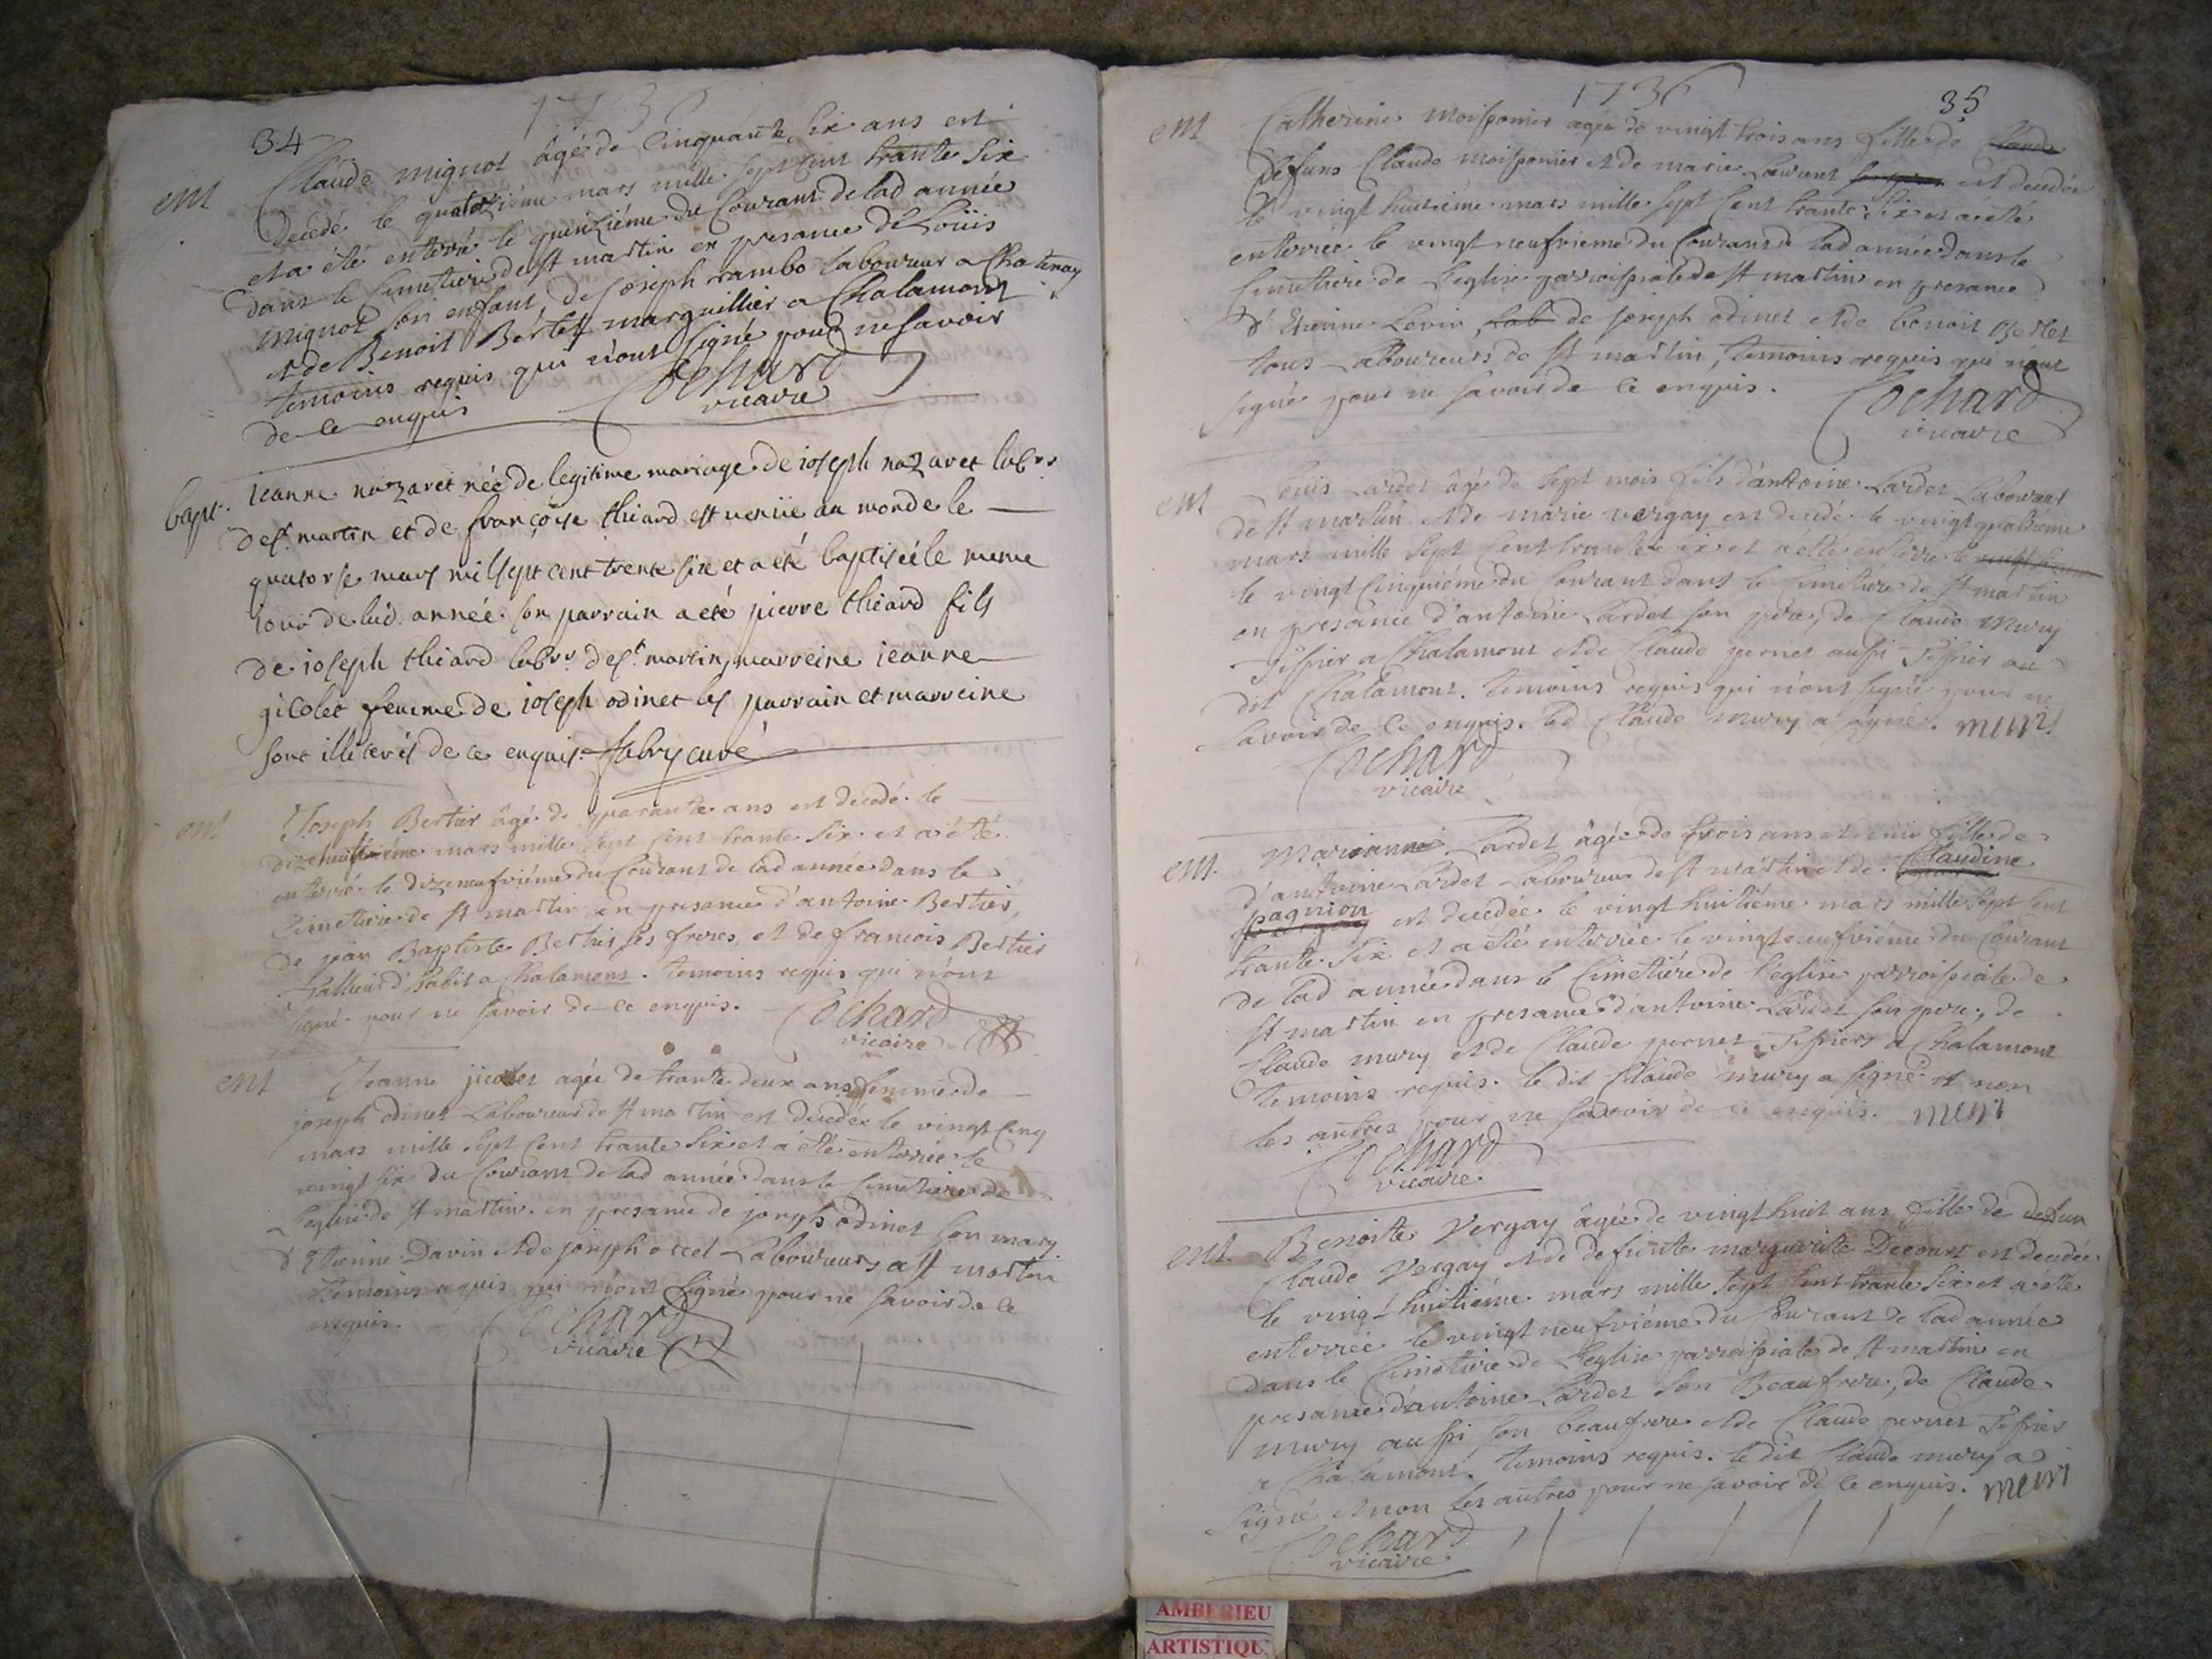 1736
34
ent
Claude mignot âgé de Cinquante Six ans est
decedé le quatorziéme mars mille Sept Cent trante Six
et a été enterré le quinziéme du Courant de lad année
dans le Cimetiere de st martin en presance de Loüis
mignot son enfant, de joseph rambo laboureur a Chatenay
et de Benoit Bertet marguillier a Chalamont
temoins requis qui n'ont signé pour ne savoir
de ce enquis Cochard
vicaire
bapt.
ieanne nazaret née de legitime mariage de ioseph nazaret labrr
de st martin et de françoise thicard est venüe au monde le
quatorse mars mil sept cent trente six et a été baptisée le meme
iour de lad. année son parrain a été pierre thicard fils
de ioseph thicard labrr de st martin, marreine ieanne
gicolet femme de ioseph odinet les parrain et marreine
sont illiterés de ce enquis fabry curé
ent
Joseph Bertier âgé de quarante ans est decedé le
dizehuitiéme mars mille Sept Cent trante Six et a été
enterré le dizeneufviéme du Courant de lad année dans le
Cimetiere de st martin en presance d'antoine Bertier,
de jean Baptiste Bertier ses freres, et de francois Bertier
Tallieur d'habit a Chalamont. temoins requis qui n'ont
signé pour ne savoir de ce enquis. Cochard
vicaire
ent
Jeanne jicolet agée de trante deux ans femme de
joseph odinet Laboureur de st martin est decedée le vingt Cinq
mars mille Sept Cent trante Six et a été enterrée le
vingt six du Courant de lad année dans le Cimetiere de
Leglise de st martin. en presance de joseph odinet son mary
d'Etienne Davin et de joseph orcel Laboureurs a st martin
temoins requis qui n'ont signé pour ne savoir de ce
enquis. Cochard
vicaire
1736
35
ent
Catherine moissonier agée de vingt trois ans fille de Claude
defunt Claude moissonier et de marie Laurent est decedée
le vingt huitiéme mars mille Sept Cent trante Six et a été
enterrée le vingt neufvieme du Courant de lad année dans le
Cimetiere de Leglise parroissiale de st martin en presance
d'Etienne Levin, lab de joseph odinet et de benoit Bertet
tous Laboureurs de st martin, temoins requis qui n'ont
signé pour ne savoir de ce enquis. Cochard
vicaire
ent
Louis Lardet âgé de Sept mois fils d'antoine Lardet Laboureur
de st martin et de marie vergay est decedé le vingt quatriéme
mars mille Sept Cent trante Six et a été enterré le
le vingt Cinquiéme du Courant dans le Cimetiére de st martin
en presance d'antoine Lardet son père, de Claude mury
Tissier a Chalamont et de Claude pernet aussi Tissier au
dit Chalamont. temoins requis qui n'ont signé pour ne
savoir de ce enquis. led Claude mury a signé. muri
Cochard
vicaire
ent.
Marianne Lardet âgée de trois ans et demi fille de
d'antoine Lardet Laboureur de st martin et de Claudine
pagnion est decedée le vingt huitiéme mars mille Sept Cent
trante Six et a été enterrée le vingt neufviéme du Courant
de lad année dans le Cimetiére de l'eglise parroissiale de
st martin en presance d'antoine Lardet son pere, de
Claude mury et de Claude pernet Tissiers a Chalamont
temoins requis. le dit Claude mury a signé et non
les autres pour ne savoir de ce enquis. muri
Cochard
vicaire
ent.
Benoite Vergay âgée de vingt huit ans fille de defun
Claude Vergay et de defunte marguerite Decourt est decedée
le vingt huitiéme mars mille Sept Cent trante Six et a été
enterrée le vingt neufviéme du Courant de lad année
dans le Cimetiere de Leglise parroissiale de st martin en
presance d'antoine Lardet son Beaufrere, de Claude
mury aussi son beaufrere et de Claude pernet Tissier
a Chalamont. temoins requis. le dit Claude mury a
signé et non les autres pour ne savoir de ce enquis. muri
Cochard
vicaire
AMBERIEU
ARTISTIQU